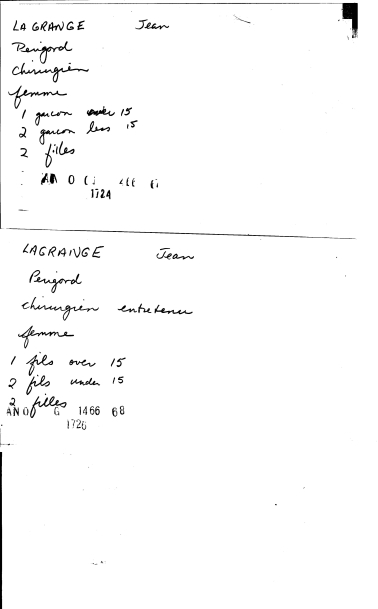 LA GRANGE Jean
Perigord
chirurgien
femme
1 garcon over 15
2 garcon less 15
2 filles
AN O
1724
LAGRANGE Jean
Perigord
chirurgien entretenu
femme
1 fils over 15
2 fils under 15
2 filles
AN O G 1466 68
1726